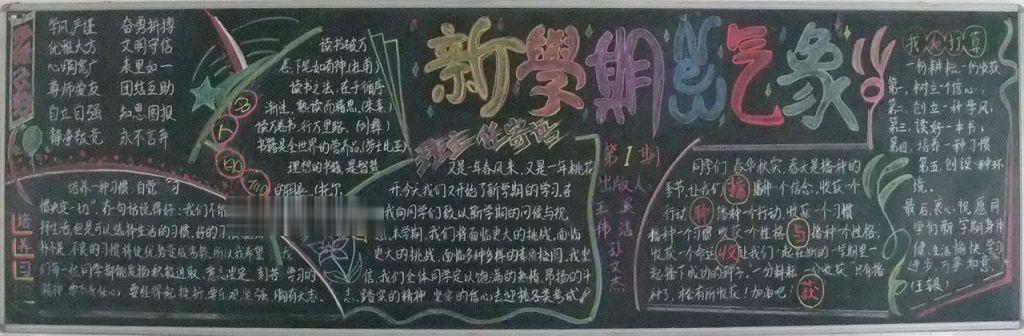 学风严谨 奋勇拼搏
优雅大方 文明守信
心胸宽广 表里如一
尊师爱友 团结互助
自立自强 知恩图报
静争敬竞 永不言弃
读书破万
卷,下笔如有神(杜甫)
读书之法,在于循序
渐进,熟读而精思。(朱熹)
读万卷书,行万里路。(刘彝)
书籍是全世界的营养品(莎士比亚)
理想的书籍是智慧
新學期 新气象
班主任寄语
又是一年春风来,又是一年桃花
开。今天我们又开始了新学期的学习。
我向同学们致以新学期的问候与祝
本学期,我们将面临更大的挑战,面临
更大的挑战,面临多种多样的素质检阅,我坚
信,我们全体同学定以饱满的热情,昂扬的斗
志,踏实的精神,坚实的信心去迎接各类考试!
第1期
出版人:
吴洁
王伟
孙文杰
同学们,春华秋实,春天是播种的
季节,让我们播种一个信念,收获一个
行动,种播种一个行动,收获一个习惯
播种一个习惯,收获一个性格,与播种一个性格,
收获一个命运,收让我们一起在新的一学期里一
起播下成功的种子,一分耕耘,一分收获,只有播
种了,才会有所收获!加油吧!获
我的打算
一份耕耘,一份收获
第一,树立一个信心;
第二,创立一种学风;
第三,读好一本书;
第四,培养一种习惯
第五,创设一种环
境。
最后,衷心祝愿同
学们新学期身体
健康,生活愉快,学习
进步,万事如意。
培养一种习惯 自觉 学习
惯决定一切",有句话说得好:我们不能
择生活,但是可以选择生活的习惯,好的习惯
补不足,不良的习惯将使优势变成劣势,所以我希望
们每一位同学都能发扬积极进取、意志坚定、刻苦学习的
精神,要有责任心,要经得起挫折,要乐观坚强,胸有大志。
培养习